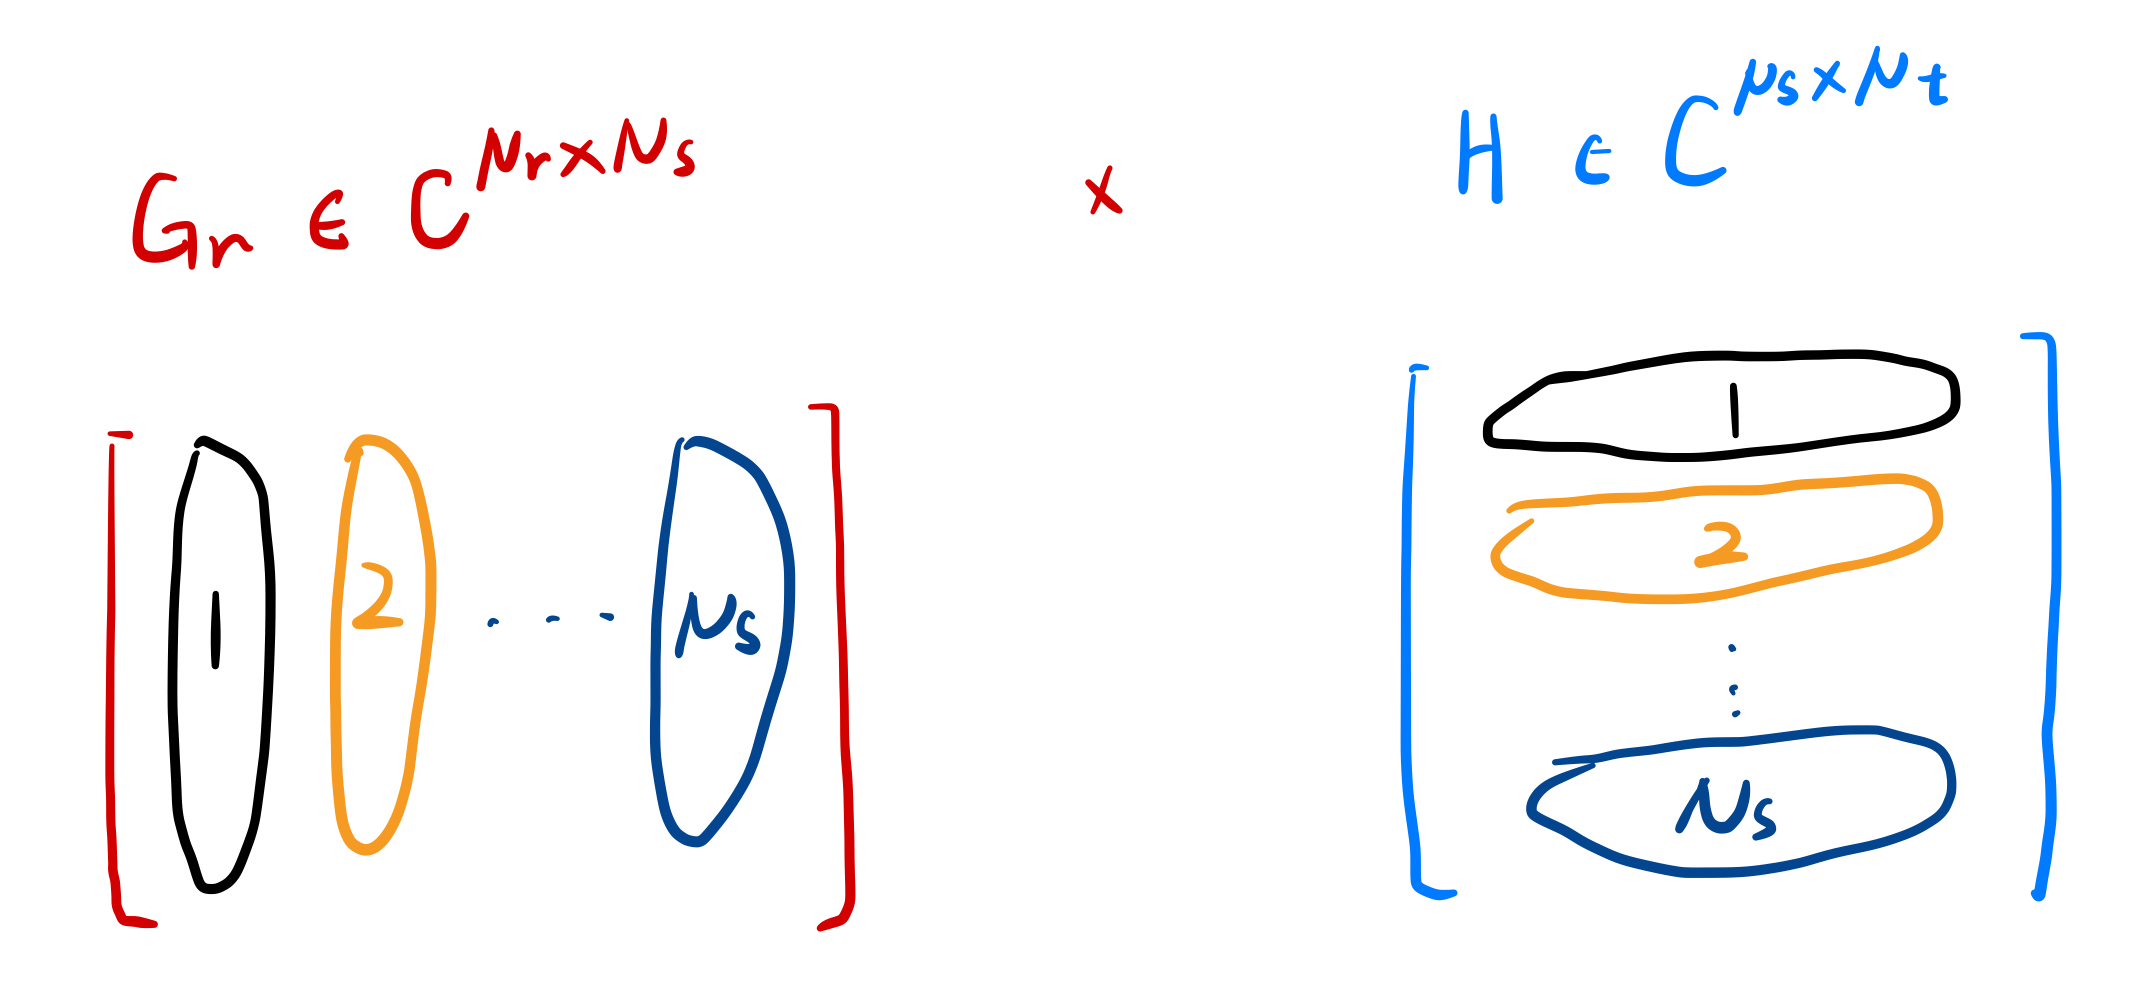 Gr ∈ C^{Nr×Ns} × H ∈ C^{Ns×Nt}
[ 1 2 ... Ns ]
[ 1
2
⋮
Ns ]